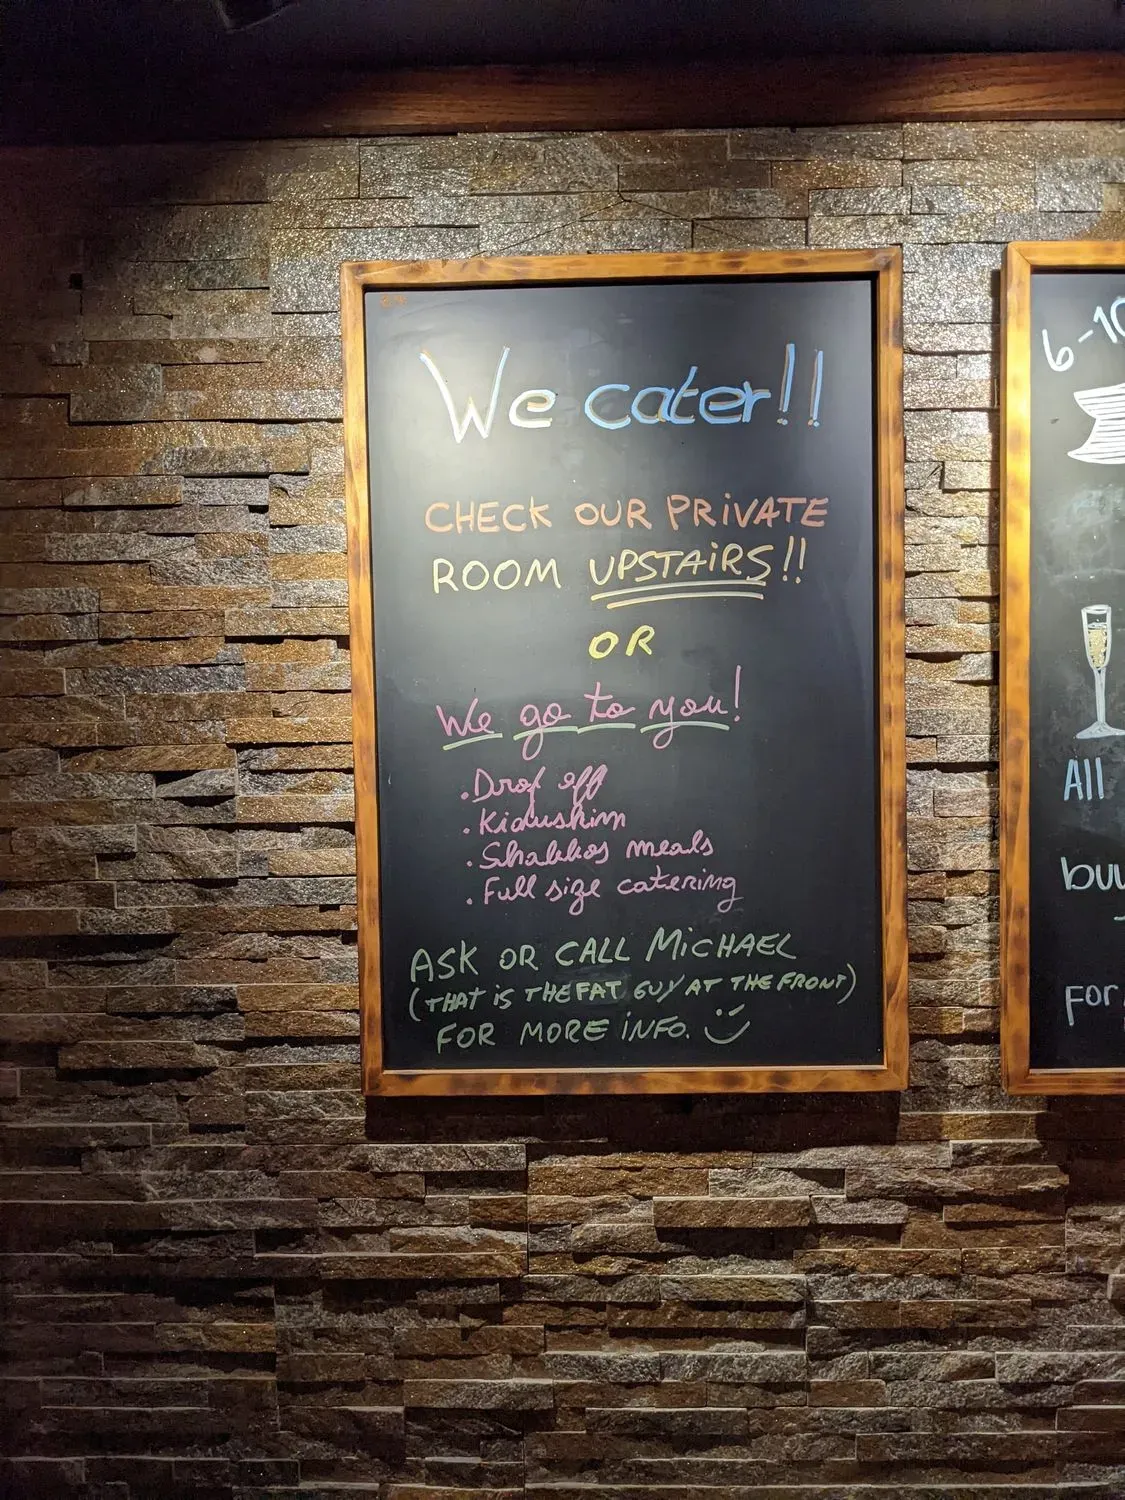 We cater!!
CHECK OUR PRiVATE
ROOM UPSTAiRS!!
OR
We go to you!
.Drop off
.Kidushim
.Shabbos meals
.Full size catering
ASK OR CALL MiCHAEL
(THAT iS THE FAT GUY AT THE FRONT)
FOR MORE iNFO.
6-10
All
buy
FOR